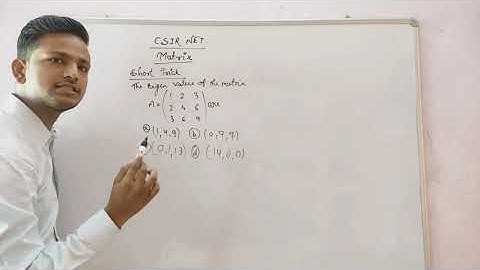 CSIR NET
Matrix
Short Trick
The Eigen value of the matrix
A = ( 1 2 3
2 4 6
3 6 9 ) are
(a) (1,4,9) (b) (0,9,7)
(0,1,13) (d) (14,0,0)